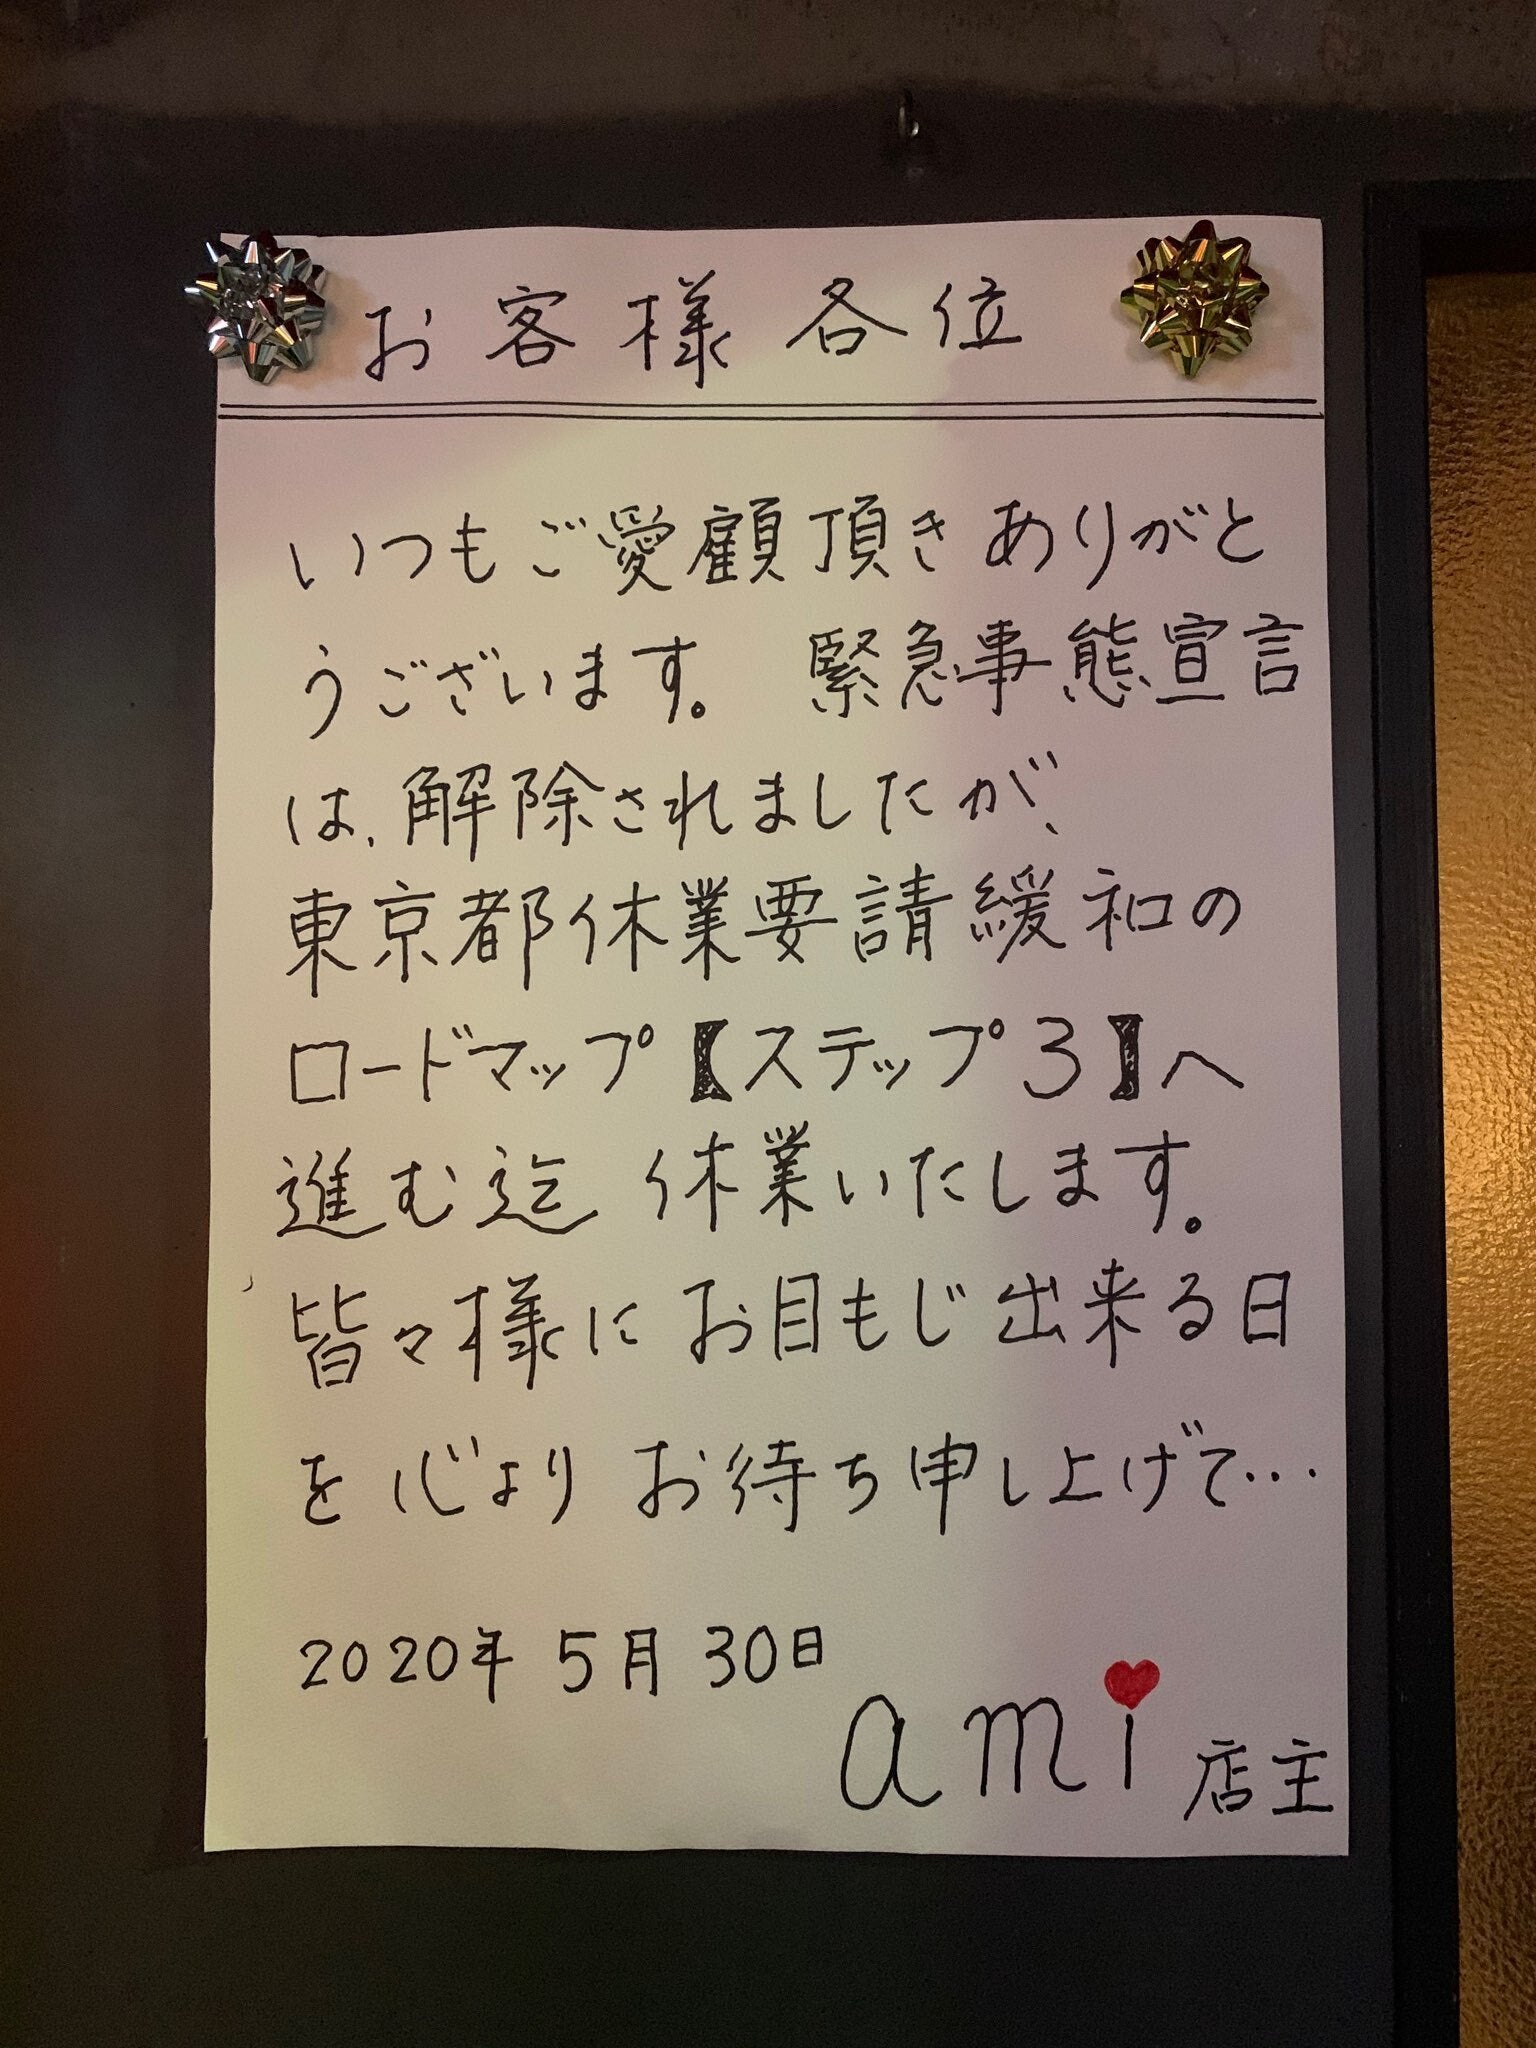 お客様各位
いつもご愛顧頂きありがと
うございます。 緊急事態宣言
は、解除されましたが、
東京都休業要請緩和の
ロードマップ【ステップ3】へ
進む迄 休業いたします。
皆々様に お目もじ出来る日
を 心より お待ち申し上げて…
2020年 5月 30日
ami 店主